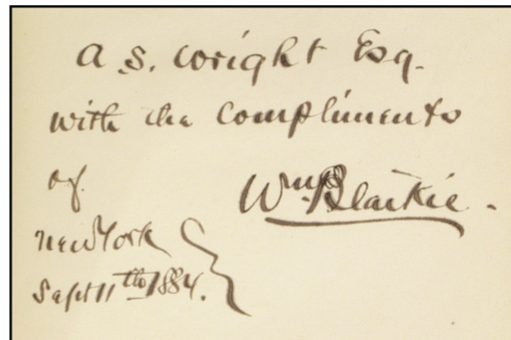 A. S. Wright Esq.
with the compliments
of Wm. Blaikie.
New York
Sept 11th 1884.